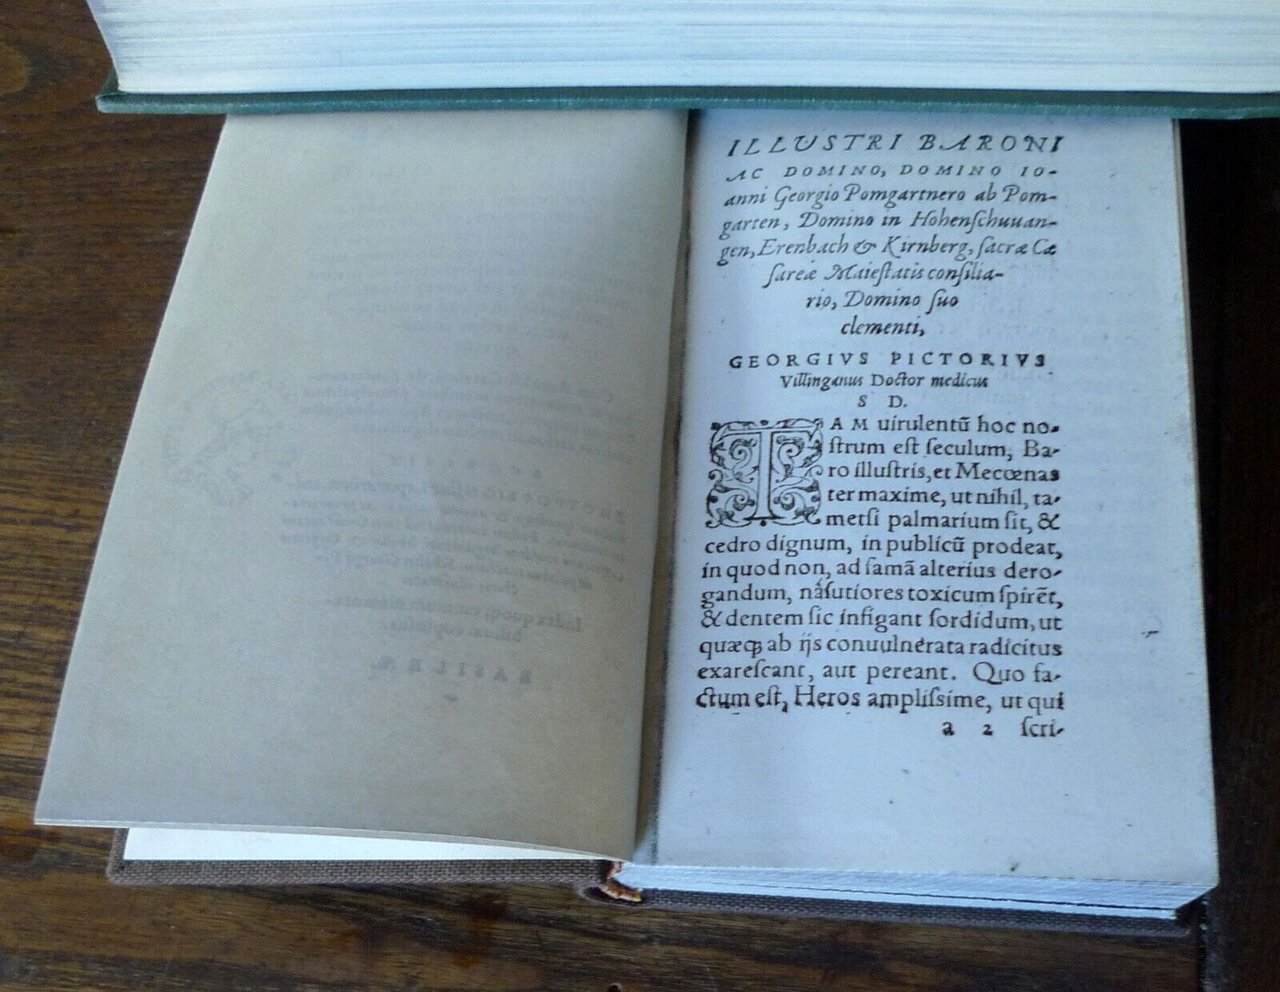 ILLUSTRI BARONI
AC DOMINO, DOMINO IO-
anni Georgio Pomgartnero ab Pom-
garten, Domino in Hohenſchuuan-
gen, Erenbach & Kirnberg, ſacræ Cæ
ſareæ Maieſtatis conſilia-
rio, Domino ſuo
clementi,
GEORGIVS PICTORIVS
Villinganus Doctor medicus
S D.
TAM uirulentũ hoc no-
ſtrum eſt ſeculum, Ba-
ro illuſtris, et Mecœnas
ter maxime, ut nihil, ta-
metſi palmarium ſit, &
cedro dignum, in publicũ prodeat,
in quod non, ad famã alterius dero-
gandum, náſutiores toxicum ſpirẽt,
& dentem ſic infigant ſordidum, ut
quæq; ab ijs conuulnerata radicitus
exareſcant, aut pereant. Quo fa-
ctum eſt, Heros ampliſsime, ut qui
a 2 ſcri-